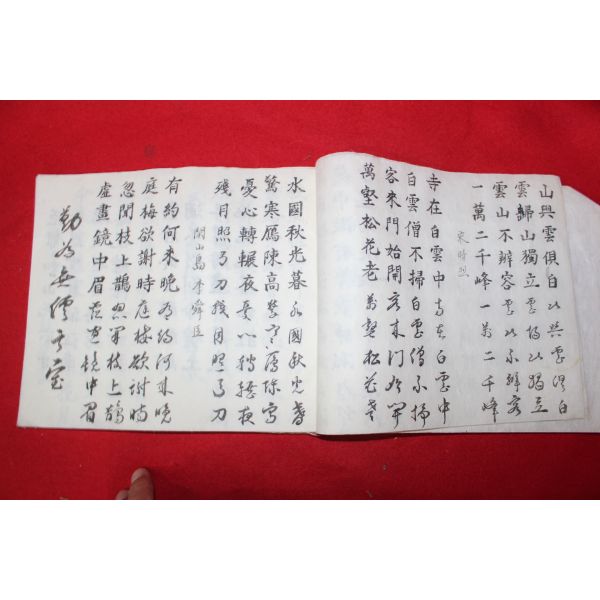 山與雲俱白山與雲俱白
雲歸山獨立雲歸山獨立
雲山不辨容雲山不辨容
一萬二千峰一萬二千峰
宋時烈
寺在白雲中寺在白雲中
白雲僧不掃白雲僧不掃
客來門始開客來門始開
萬壑松花老萬壑松花老
水國秋光暮水國秋光暮
驚寒雁陳高驚寒雁陳高
憂心轉輾夜憂心轉輾夜
殘月照弓刀殘月照弓刀
閑山島 李舜臣
有約何來晚有約何來晚
庭梅欲謝時庭梅欲謝時
忽聞枝上鵲忽聞枝上鵲
虛畫鏡中眉虛畫鏡中眉
勤為無價之宝